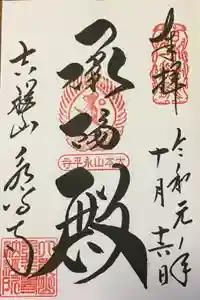 奉拝
令和元年
十月十六日
承陽殿
大本山永平寺
吉祥山永平寺